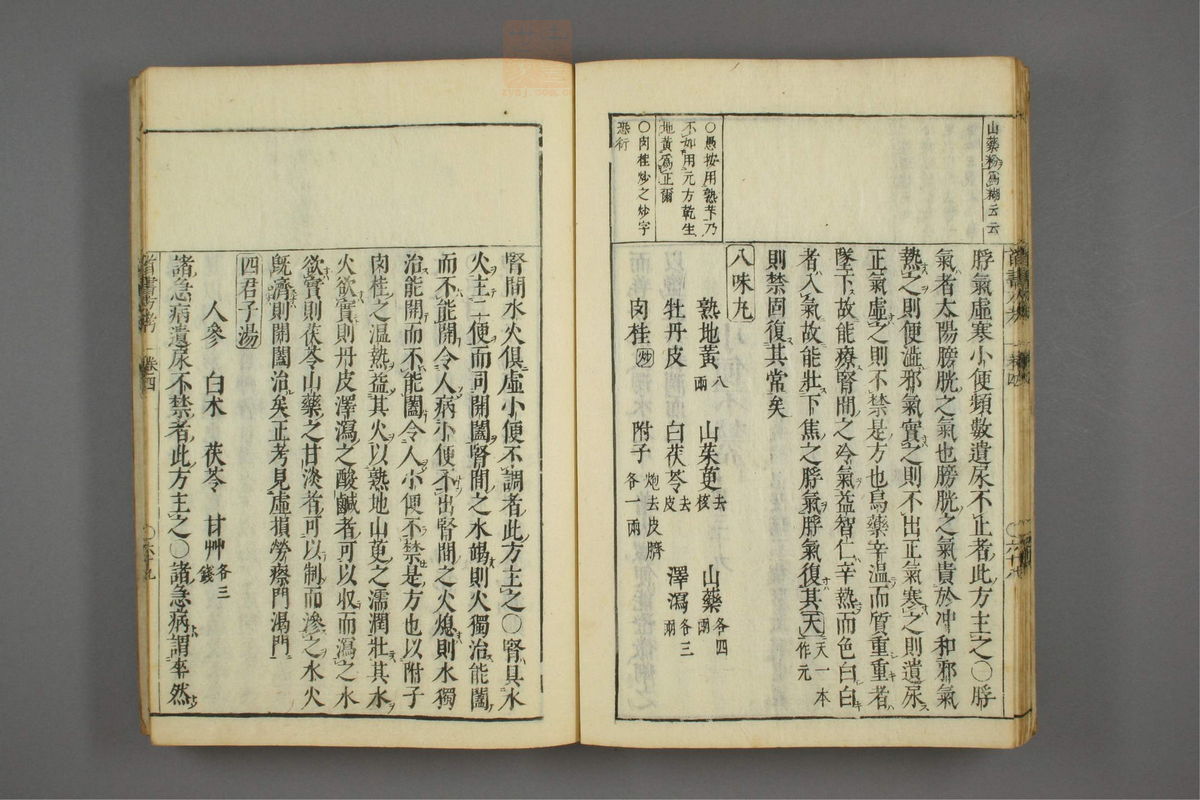 山藥粉爲糊云云
○愚按用熟芐乃
不如用元方乾生
地黃爲正爾
○肉桂炒之炒字
恐衍
脬氣虛寒小便頻數遺尿不止者此方主之○脬
氣者太陽膀胱之氣也膀胱之氣貴於冲和邪氣
熱之則便澁邪氣實之則不出正氣寒之則遺尿
正氣虛之則不禁是方也烏藥辛溫而質重重者
墜下故能療腎間之冷氣益智仁辛熱而色白白
者入氣故能壯下焦之脬氣脬氣復其天天一本作元
則禁固復其常矣
八味丸
熟地黃八兩 山茱萸去核 山藥各四兩
牡丹皮 白茯苓去皮 澤瀉各三兩
肉桂炒 附子炮去皮臍各一兩
腎間水火俱虛小便不調者此方主之○腎具水
火主二便而司開闔腎間之水竭則火獨治能闔
而不能開令人病小便不出腎間之火熄則水獨
治能開而不能闔令人小便不禁是方也以附子
肉桂之溫熱益其火以熟地山萸之濡潤壯其水
火欲實則丹皮澤瀉之酸鹹者可以収而瀉之水
欲實則茯苓山藥之甘淡者可以制而滲之水火
旣濟則開闔治矣正考見虛損勞瘵門渴門
四君子湯
人參 白朮 茯苓 甘艸各三錢
諸急病遺尿不禁者此方主之○諸急病謂卒然
卷四